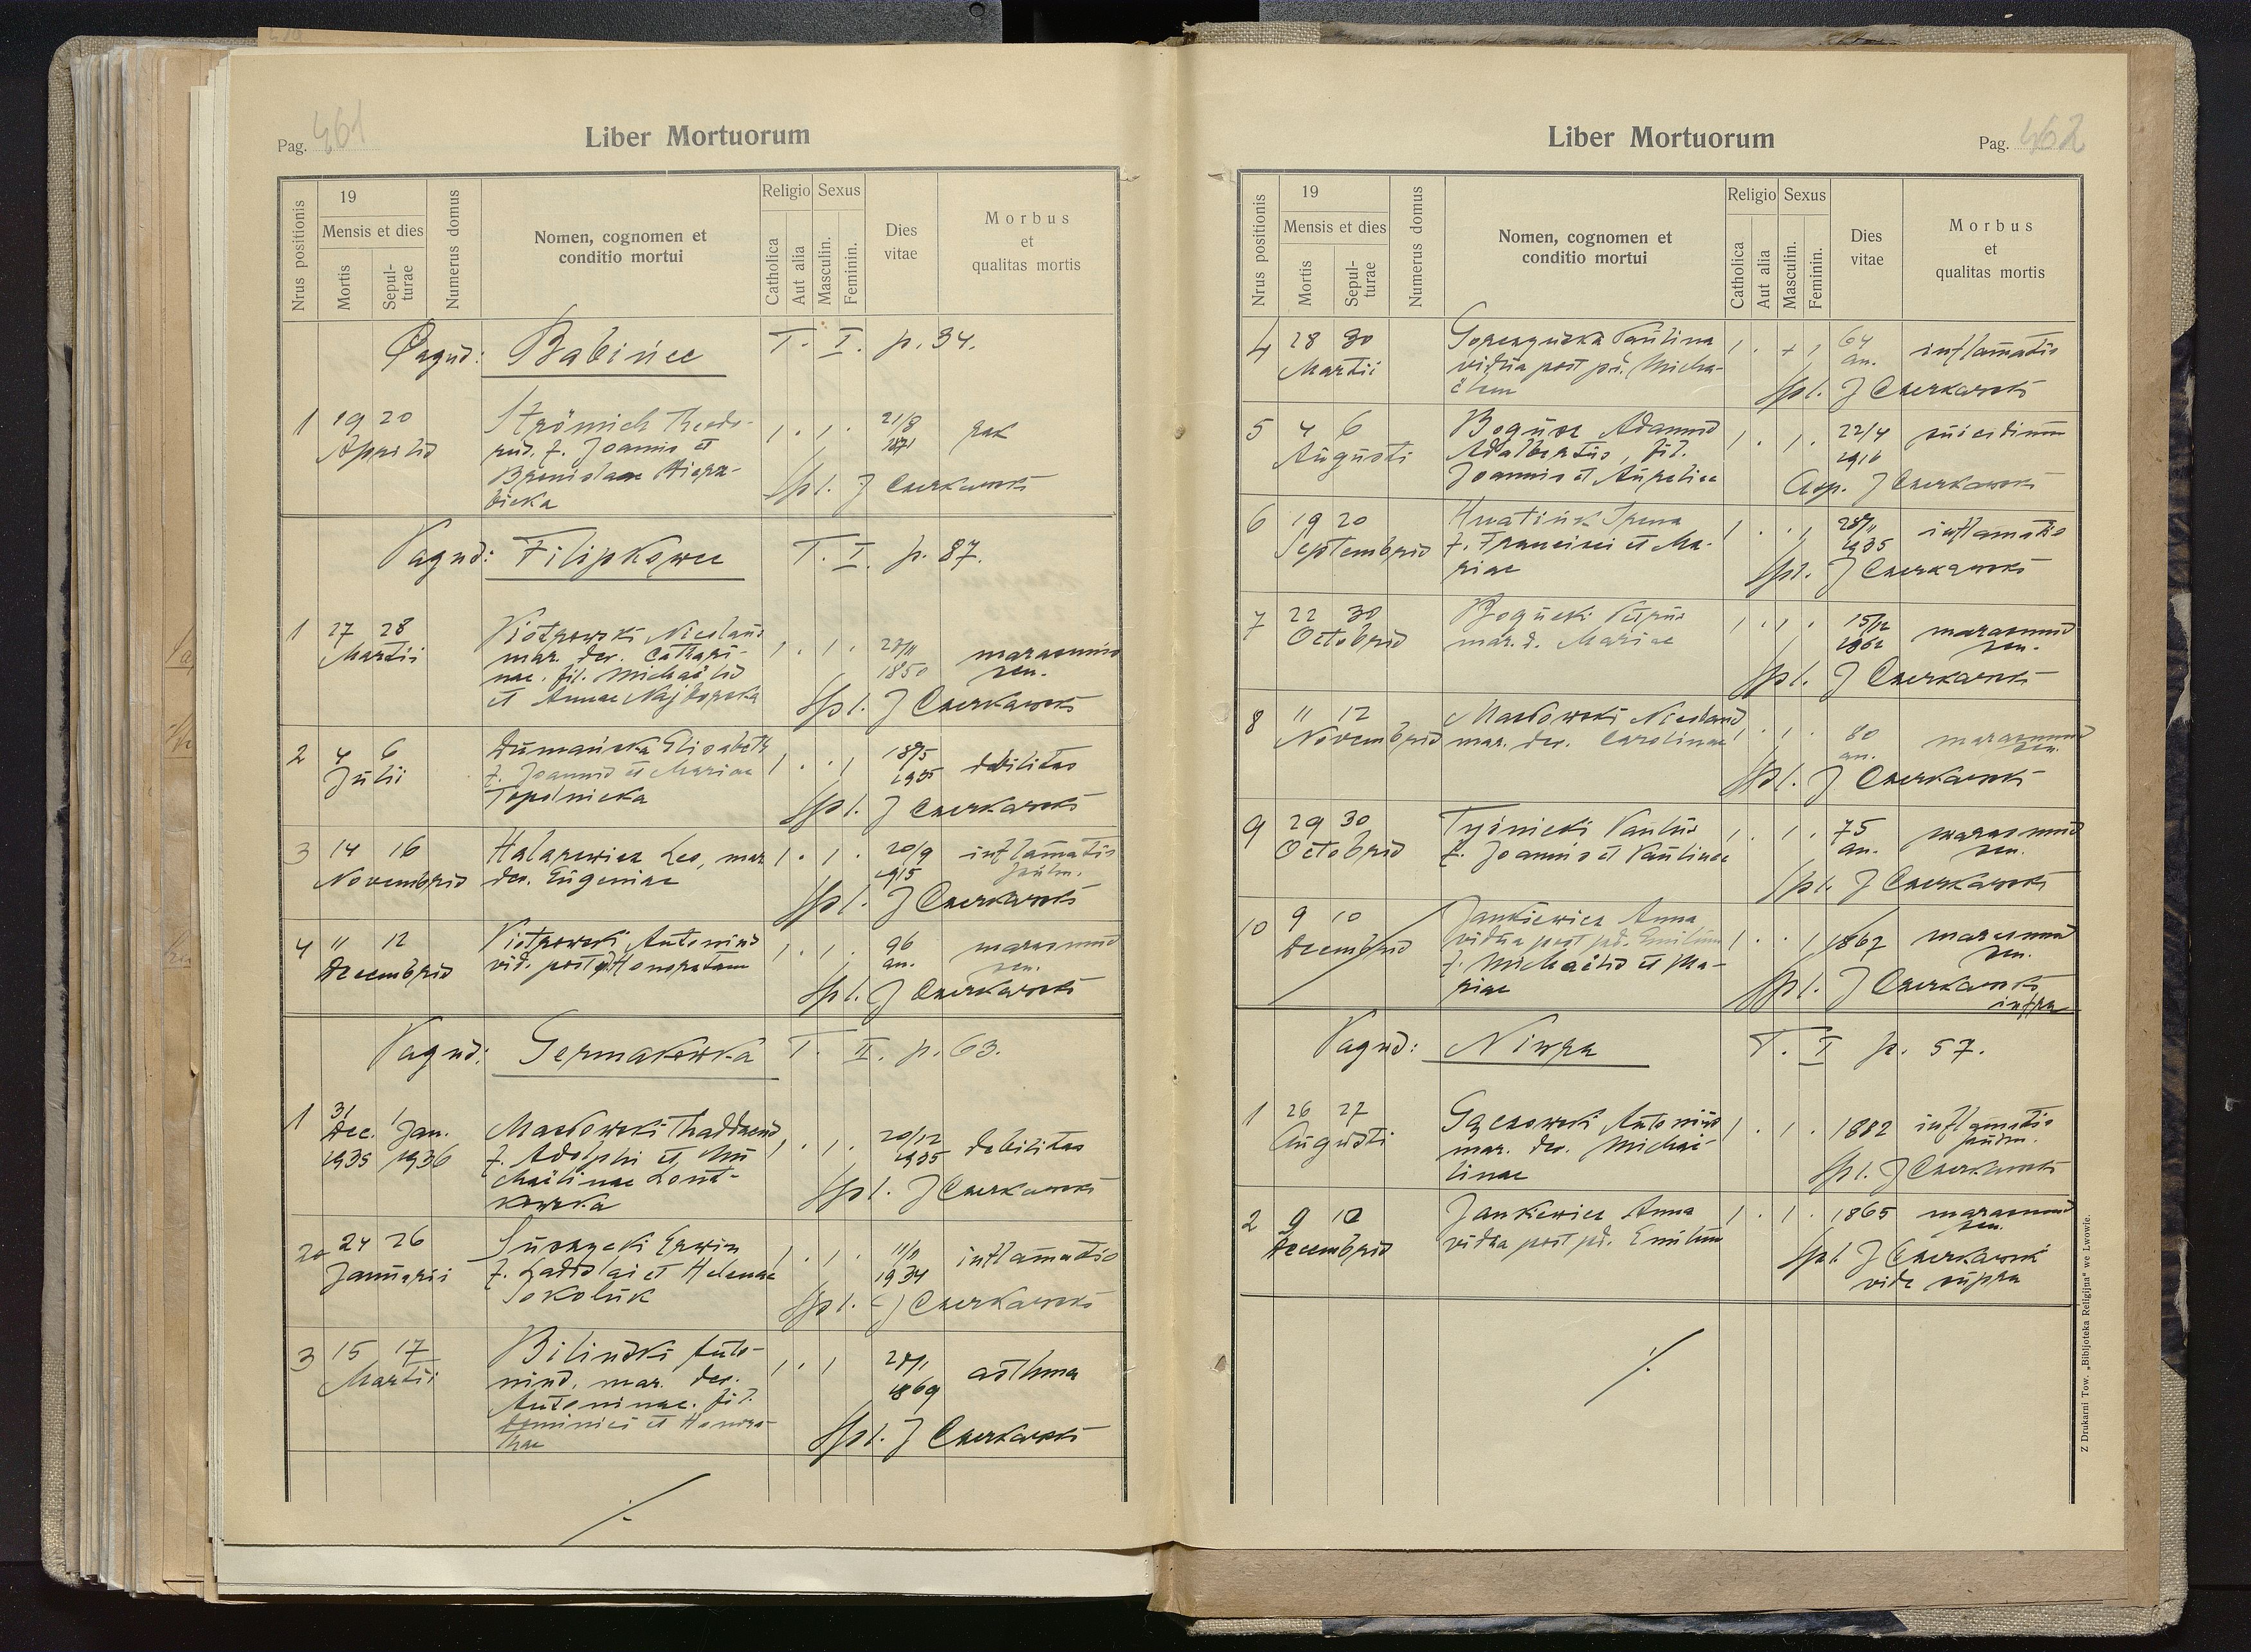 Pag. 461
Liber Mortuorum
Nrus positionis
19
Mensis et dies
Mortis
Sepul-
turae
Numerus domus
Nomen, cognomen et
conditio mortui
Religio
Catholica
Aut alia
Sexus
Masculin.
Feminin.
Dies
vitae
Morbus
et
qualitas mortis
Pagus: Babińce T. I. p. 34.
1 19 20 Strömich Theodo- 1 . 1 . 21/8 rak
Aprilis rus, f. Joannis et 1871
Bronislaae
bicka Spl. J Czerkawski
Pagus: Filipkowce T. I. p. 87.
1 27 28 Piotrowski Nicolaus
Martii mar. der. Cathari- 1 . 1 . marasmus
nae. fil. Michaëlis 1850 sen.
et Annae Najborska Spl. J Czerkawski
2 4 6 Dumańska Elisabeth 18/5
Julii f. Joannis et Mariae 1 . . 1 1935 debilitas
Topolnicka Spl. J Czerkawski
3 14 16 Halarewicz Leo, mar 1 . 1 . 20/9 inflamatio
Novembris der. Eugeniae 1915 pulm.
Spl. J Czerkawski
4 11 12 Piotrowski Antonius 1 . 1 . 96 marasmus
Decembris vid. post pd Honoratam an. sen.
Spl. J Czerkawski
Pagus: Germakówka T. II. p. 63.
1 31 1
Dec. Jan. Maćkowski Thaddaeus 1 . 1 . 20/12 debilitas
1935 1936 f. Adolphi et Mi 1935
chaëlinae
Spl. J Czerkawski
2 24 26 Erwin 1 . 1 . 11/11 inflamatio
Januarii f. Ladislai et Helenae 1934
Sokoluk Spl. J Czerkawski
3 15 17 Biliński Anto- 1 . 1
Martii nius, mar. der. 1869 asthma
Antoninae. fil.
Dominici et Honora-
thae Spl. J Czerkawski
./.
Liber Mortuorum
Pag. 462
Nrus positionis
19
Mensis et dies
Mortis
Sepul-
turae
Numerus domus
Nomen, cognomen et
conditio mortui
Religio
Catholica
Aut alia
Sexus
Masculin.
Feminin.
Dies
vitae
Morbus
et
qualitas mortis
4 28 30 Paulina 1 . + 1 64 inflamatio
Martii vidua post pd. Micha- an.
ëlem Spl. J Czerkawski
5 4 6 Adamus 1 . 1 . 22/4 suicidium
Augusti Adalbertus, fil. 1916
Joannis et Aureliae Czerkawski
6 19 20 Irena 1 . . 1 inflamatio
Septembris f. Francisci et Ma- 1935
riae Spl. J Czerkawski
7 22 30 Bogucki Petrus 1 . 1 . 15/12 marasmus
Octobris mar. d. Mariae 1862 sen.
Spl. J Czerkawski
8 11 12 Maćkowski Nicolaus
Novembris mar. der. Carolinae 1 . 1 . 80 marasmus
an. sen.
Spl. J Czerkawski
9 29 30 Tyśnicki Paulus 1 . 1 . 75 marasmus
Octobris f. Joannis et Paulinae an. sen.
Spl. J Czerkawski
10 9 10 Jankiewicz Anna
Decembris vidua post pd. Emilium 1 . . 1 1867 marasmus
f. Michaëlis et Ma- sen.
riae Spl. J Czerkawski
infra
Pagus: Niwra T. I p. 57.
1 26 27 Gączowski Antonius 1 . 1 . 1882 inflamatio
Augusti mar. der. Michae- pulm.
linae Spl. J Czerkawski
2 9 10 Jankiewicz Anna 1 . 1 . 1865 marasmus
Decembris vidua post pd. Emilium sen.
Spl. J Czerkawski
vide supra
./.
Z Drukarni Tow. „Bibljoteka Religijna“ we Lwowie.